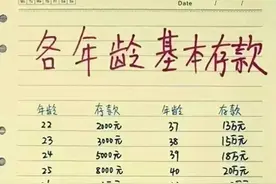 Date
各年龄基本存款
年龄 存款 年龄 存款
22 2000元 37 13万元
23 3000元 38 15万元
24 5000元 39 18万元
25 8000元 40 20万元